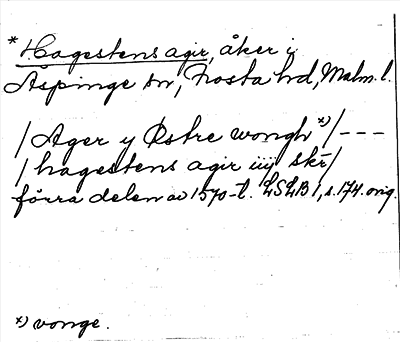 *Hagestens agir, åker i
Äspinge sn, Frosta hd, Malm. l.
/Ager y Østre wongh *)/---
/hagestens agir iiij skr/
förra delen av 1570-t. LSLB 1, s. 174. orig.
*) vonge.